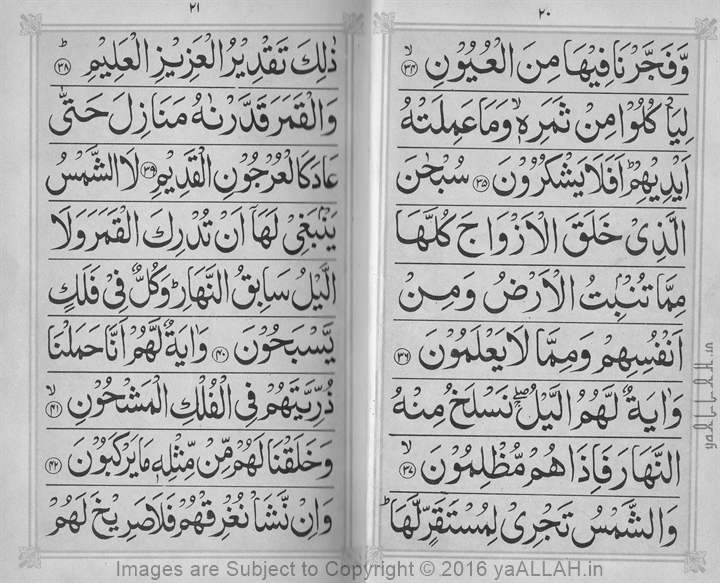 ٢٠
وَّفَجَّرْنَا فِيْهَا مِنَ الْعُيُوْنِ ۙ﴿٣٤﴾
لِيَاْكُلُوْا مِنْ ثَمَرِهٖ ۙ وَمَا عَمِلَتْهُ
اَيْدِيْهِمْ ؕ اَفَلَا يَشْكُرُوْنَ ﴿٣٥﴾ سُبْحٰنَ
الَّذِىْ خَلَقَ الْاَزْوَاجَ كُلَّهَا
مِمَّا تُنْۢبِتُ الْاَرْضُ وَمِنْ
اَنْفُسِهِمْ وَمِمَّا لَا يَعْلَمُوْنَ ﴿٣٦﴾
وَاٰيَةٌ لَّهُمُ الَّيْلُ ۖۚ نَسْلَخُ مِنْهُ
النَّهَارَ فَاِذَا هُمْ مُّظْلِمُوْنَ ۙ﴿٣٧﴾
وَالشَّمْسُ تَجْرِىْ لِمُسْتَقَرٍّ لَّهَا ؕ
٢١
ذٰلِكَ تَقْدِيْرُ الْعَزِيْزِ الْعَلِيْمِ ؕ﴿٣٨﴾
وَالْقَمَرَ قَدَّرْنٰهُ مَنَازِلَ حَتّٰى
عَادَ كَالْعُرْجُوْنِ الْقَدِيْمِ ﴿٣٩﴾ لَا الشَّمْسُ
يَنْۢبَغِىْ لَهَاۤ اَنْ تُدْرِكَ الْقَمَرَ وَلَا
الَّيْلُ سَابِقُ النَّهَارِ ؕ وَكُلٌّ فِىْ فَلَكٍ
يَّسْبَحُوْنَ ﴿٤٠﴾ وَاٰيَةٌ لَّهُمْ اَنَّا حَمَلْنَا
ذُرِّيَّتَهُمْ فِى الْفُلْكِ الْمَشْحُوْنِ ۙ﴿٤١﴾
وَخَلَقْنَا لَهُمْ مِّنْ مِّثْلِهٖ مَا يَرْكَبُوْنَ ﴿٤٢﴾
وَاِنْ نَّشَاْ نُغْرِقْهُمْ فَلَا صَرِيْخَ لَهُمْ
yaALLAH.in
Images are Subject to Copyright © 2016 yaALLAH.in